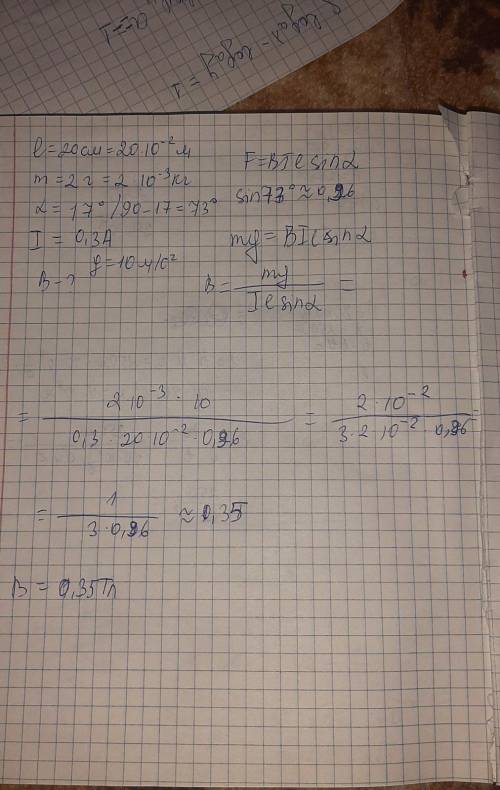 l = 20см = 20·10⁻² м
m = 2 г = 2·10⁻³ кг
α = 17° /90-17 = 73°
I = 0,3A
g = 10 м/с²
B - ?
F = BIl sinα
sin73° ≈ 0,96
mg = BIl sinα
B = mg / Il sinα =
= 2·10⁻³ · 10 / 0,3 · 20·10⁻² · 0,96 = 2·10⁻² / 3·2·10⁻² · 0,96 =
= 1 / 3·0,96 ≈ 0,35
B = 0,35Тл